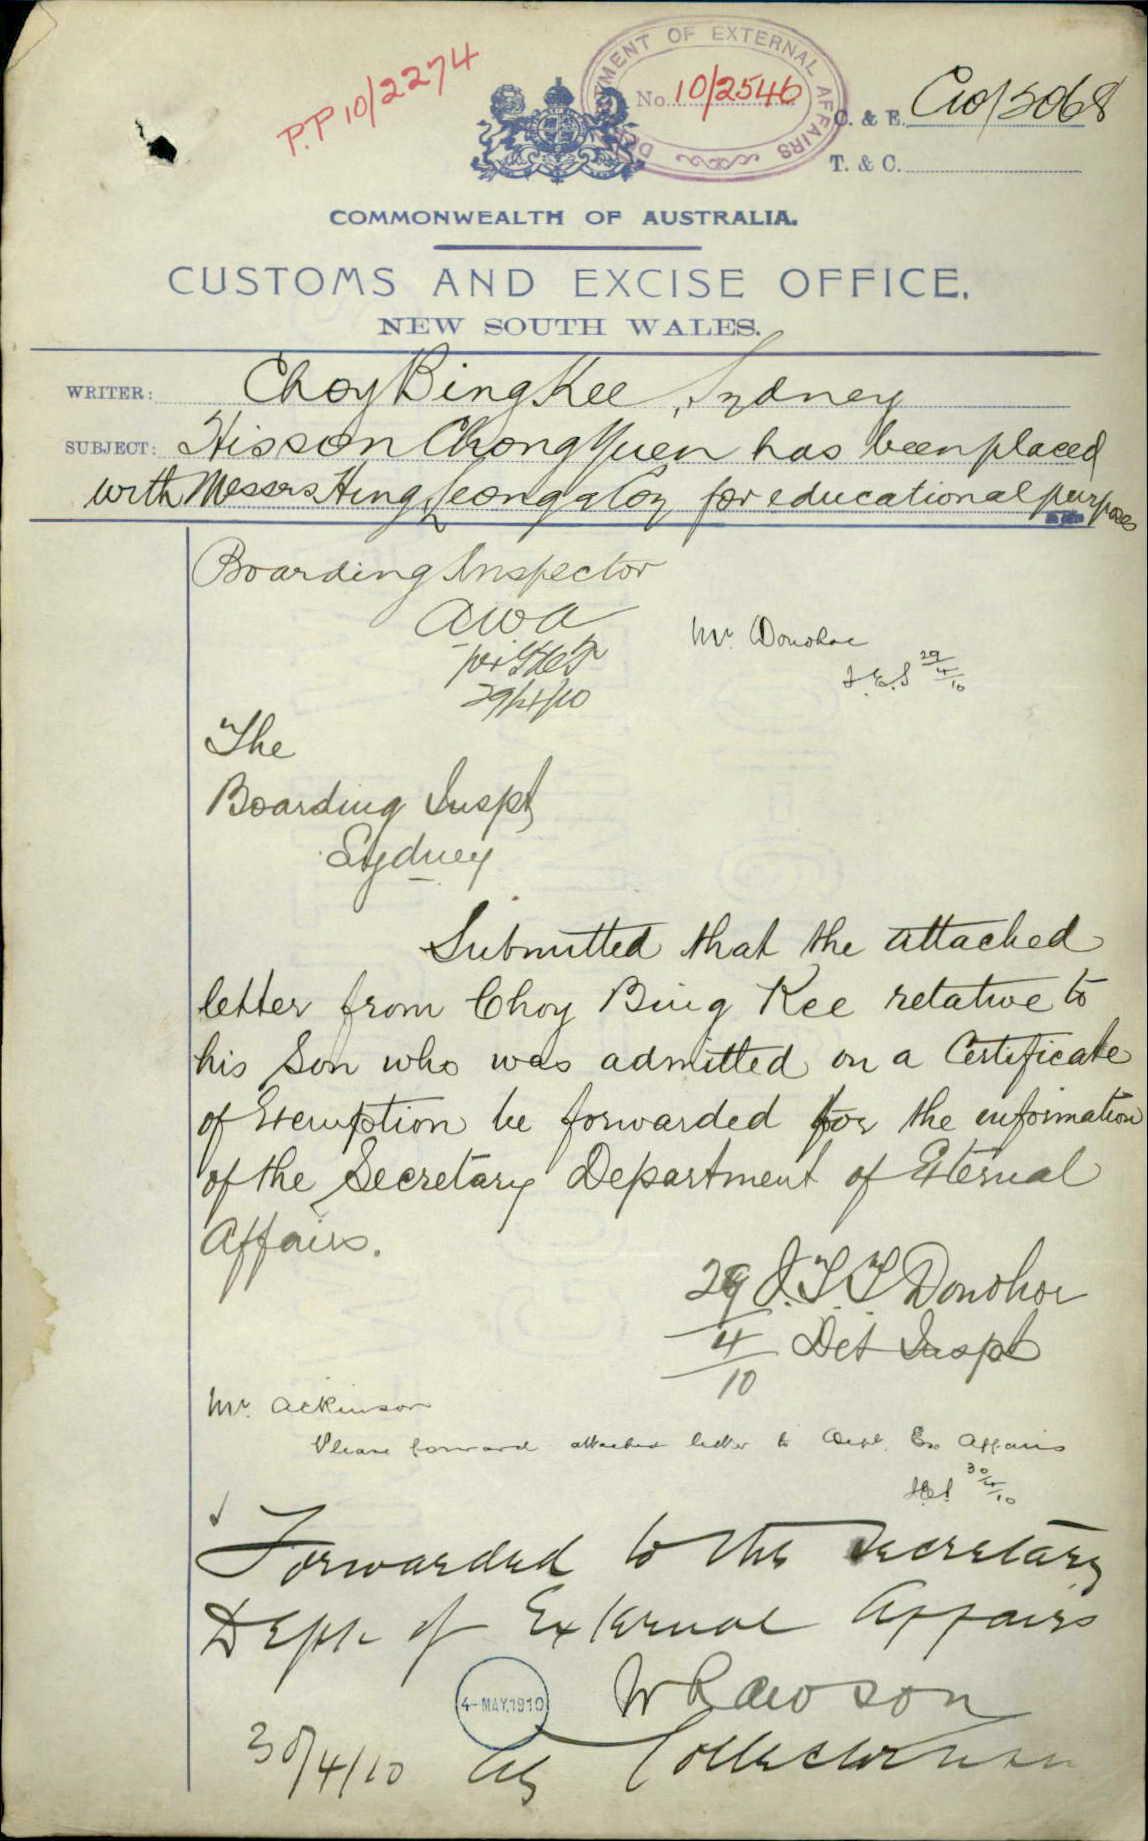 P.P 10/2274
DEPARTMENT OF EXTERNAL AFFAIRS
No. 10/2546
C. & E. C10/5068
T. & C.
COMMONWEALTH OF AUSTRALIA.
CUSTOMS AND EXCISE OFFICE.
NEW SOUTH WALES.
WRITER: Choy Bing Kee, Sydney
SUBJECT: His son Chong Yuen has been placed
with Messrs Hing Leong & Coy for educational purposes
Boarding Inspector
AWA
29/4/10
Mr. Donohoe
29/4/10
The
Boarding Inspt
Sydney
Submitted that the attached
letter from Choy Bing Kee relative to
his Son who was admitted on a Certificate
of Exemption be forwarded for the information
of the Secretary Department of External
Affairs.
29/4/10 J.T.T Donohoe
Det Inspt
Mr. Ackinson
Please forward attached letter to Dept. Ex Affairs
30/4/10
Forwarded to the Secretary
Dept. of External Affairs
4-MAY.1910
W R Lawson
30/4/10 Actg Collector NSW